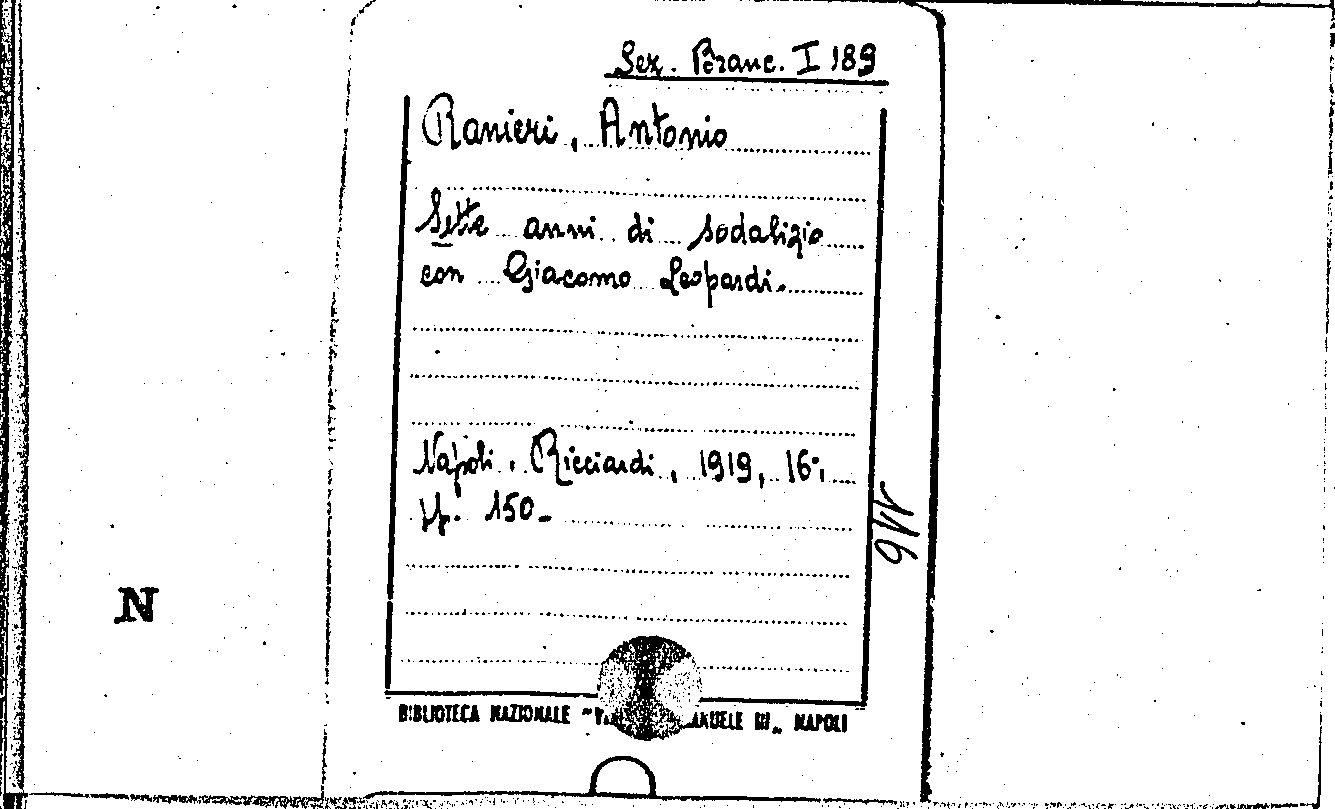 Sez. Branc. I 189
Ranieri, Antonio
Sette anni di sodalizio
con Giacomo Leopardi.
Napoli, Ricciardi, 1919, 16°,
pp. 150-
N
BIBLIOTECA NAZIONALE "V ANUELE III„ NAPOLI